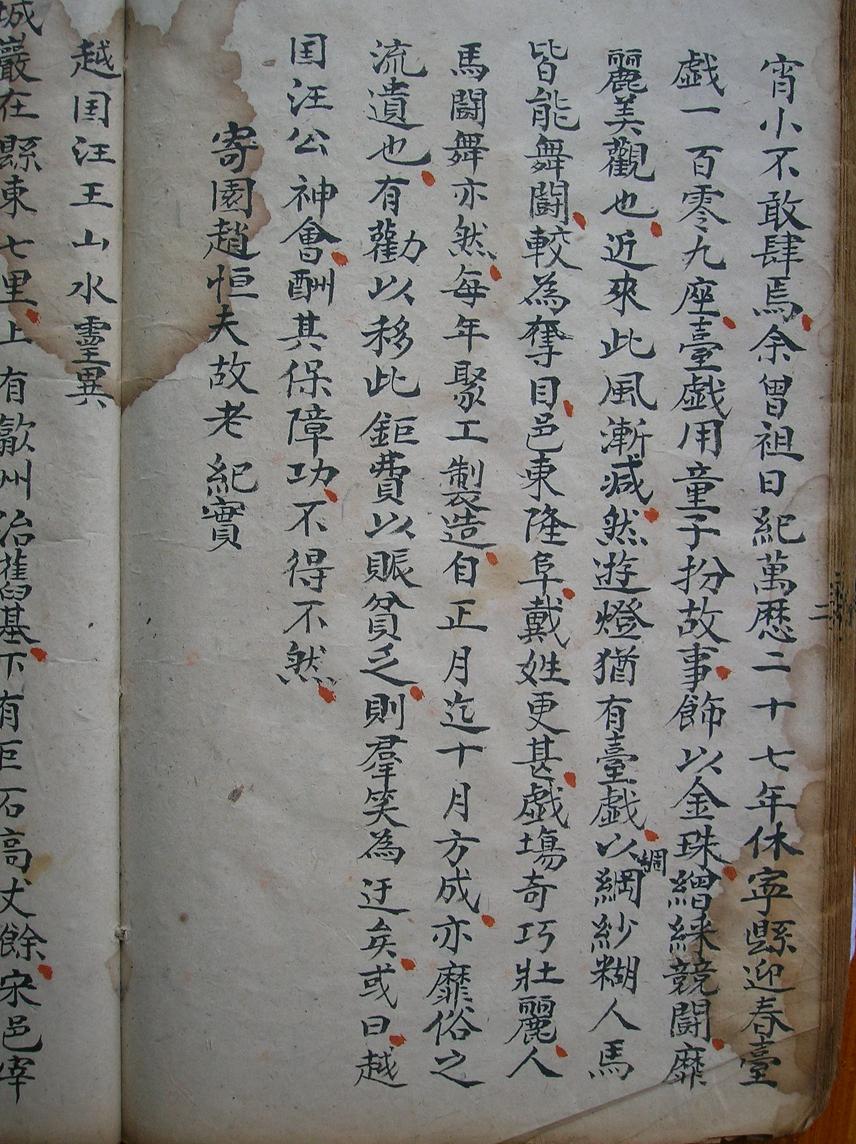 宵小不敢肆焉余曾祖日紀萬歷二十七年休寧縣迎春臺
戯一百零九座臺戯用童子扮故事飾以金珠繒綵競鬪靡
麗美觀也近來此風漸减然遊燈猶有臺戯以綢綱紗糊人馬
皆能舞鬪較為奪目邑東隆阜戴姓更甚戯塲奇巧壯麗人
馬鬪舞亦然每年聚工製造自正月迄十月方成亦靡俗之
流遺也有勸以移此鉅費以賑貧乏則羣笑為迂矣或曰越
国汪公神會酬其保障功不得不然
寄園趙恒夫故老紀實
越国汪王山水靈異
城巖在縣東七里上有歙州治舊基下有巨石高丈餘宋邑宰